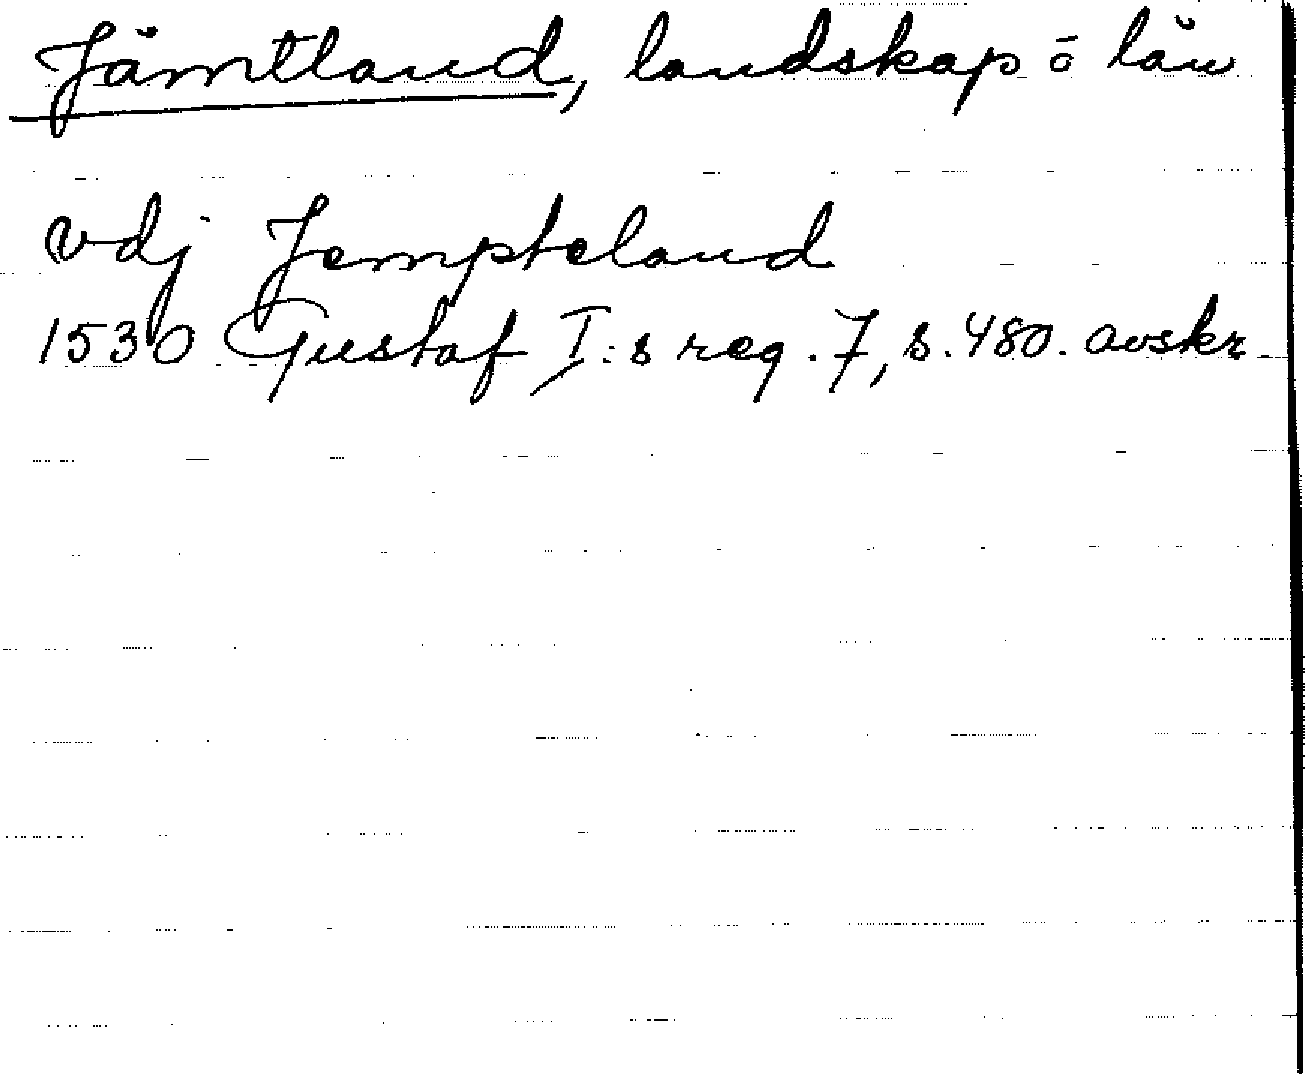 Jämtland, landskap o län
vdj Jempteland
1530 Gustaf I:s reg. 7, s. 480. avskr